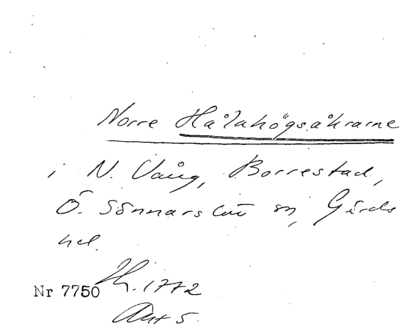 Norre Hålahögsåkrarne
i N. Vång, Borrestad,
Ö. Sönnarslöv sn, Gärds
hd.
Lh. 1772
Nr 7750
Akt 5.